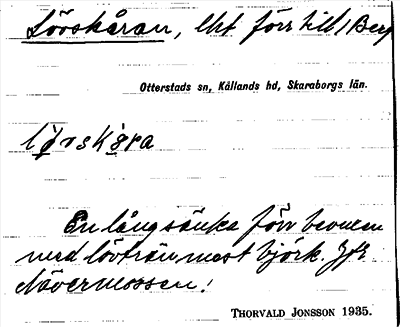 Lövskåran, lht förr till 1 Berg
Otterstads sn, Kållands hd, Skaraborgs län.
løvskåra
En lång sänka förr bevuxen
med lövträn, mest björk. Jfr
Nävermossen!
THORVALD JONSSON 1935.